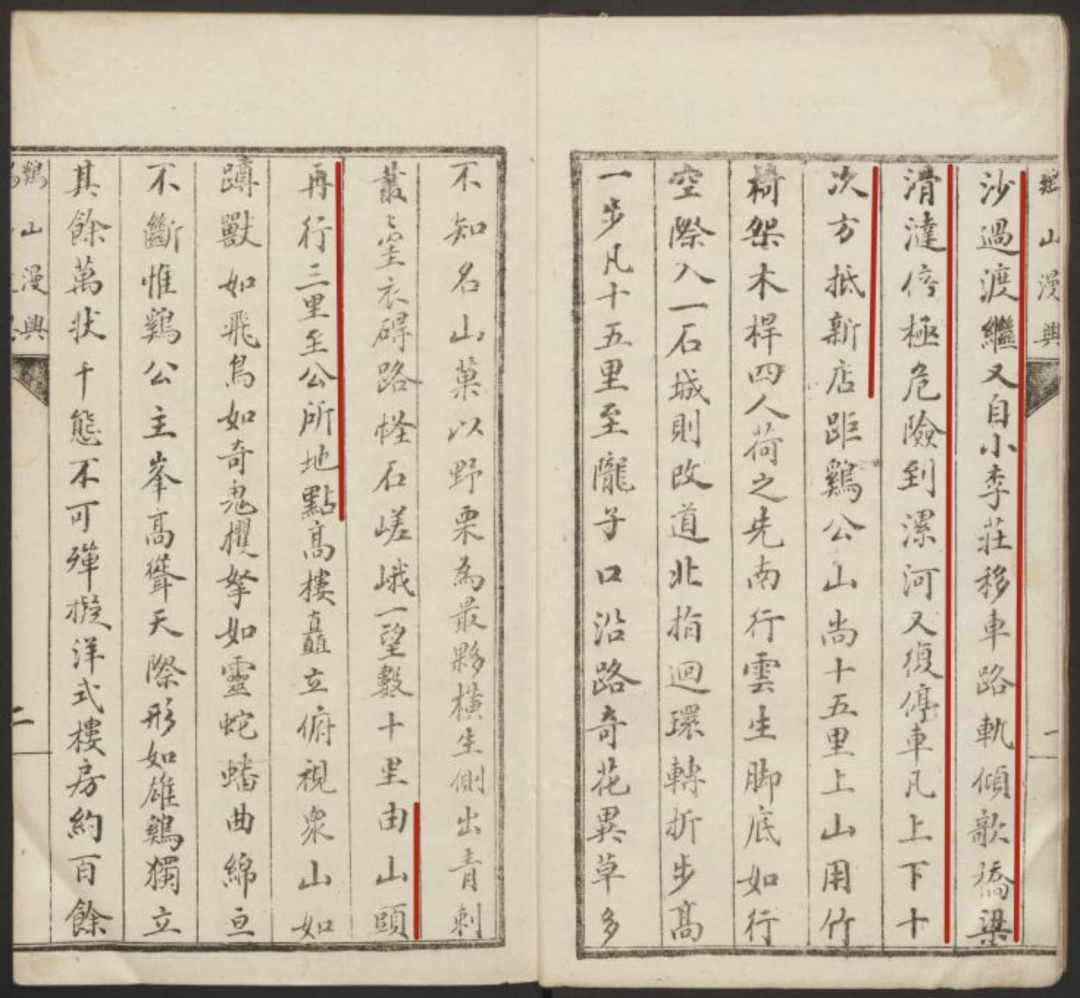 雞山漫興
一
沙過渡繼又自小李莊移車路軌傾欹橋梁
滑澾傺極危險到漯河又復停車凡上下十
次方抵新店距鷄公山尚十五里上山用竹
椅架木桿四人荷之先南行雲生脚底如行
空際入一石城則改道北指迴環轉折步高
一步凡十五里至隴子口沿路奇花異草多
不知名山菓以野栗為最夥橫生側出青刺
叢叢罣衣碍路怪石嵯峨一望數十里由山頭
再行三里至公所地點高樓矗立俯視衆山如
蹲獸如飛鳥如奇鬼攫拏如靈蛇蟠曲綿亘
不斷惟鷄公主峯高聳天際形如雄鷄獨立
其餘萬狀千態不可殫擬洋式樓房約百餘
鷄山漫興
二